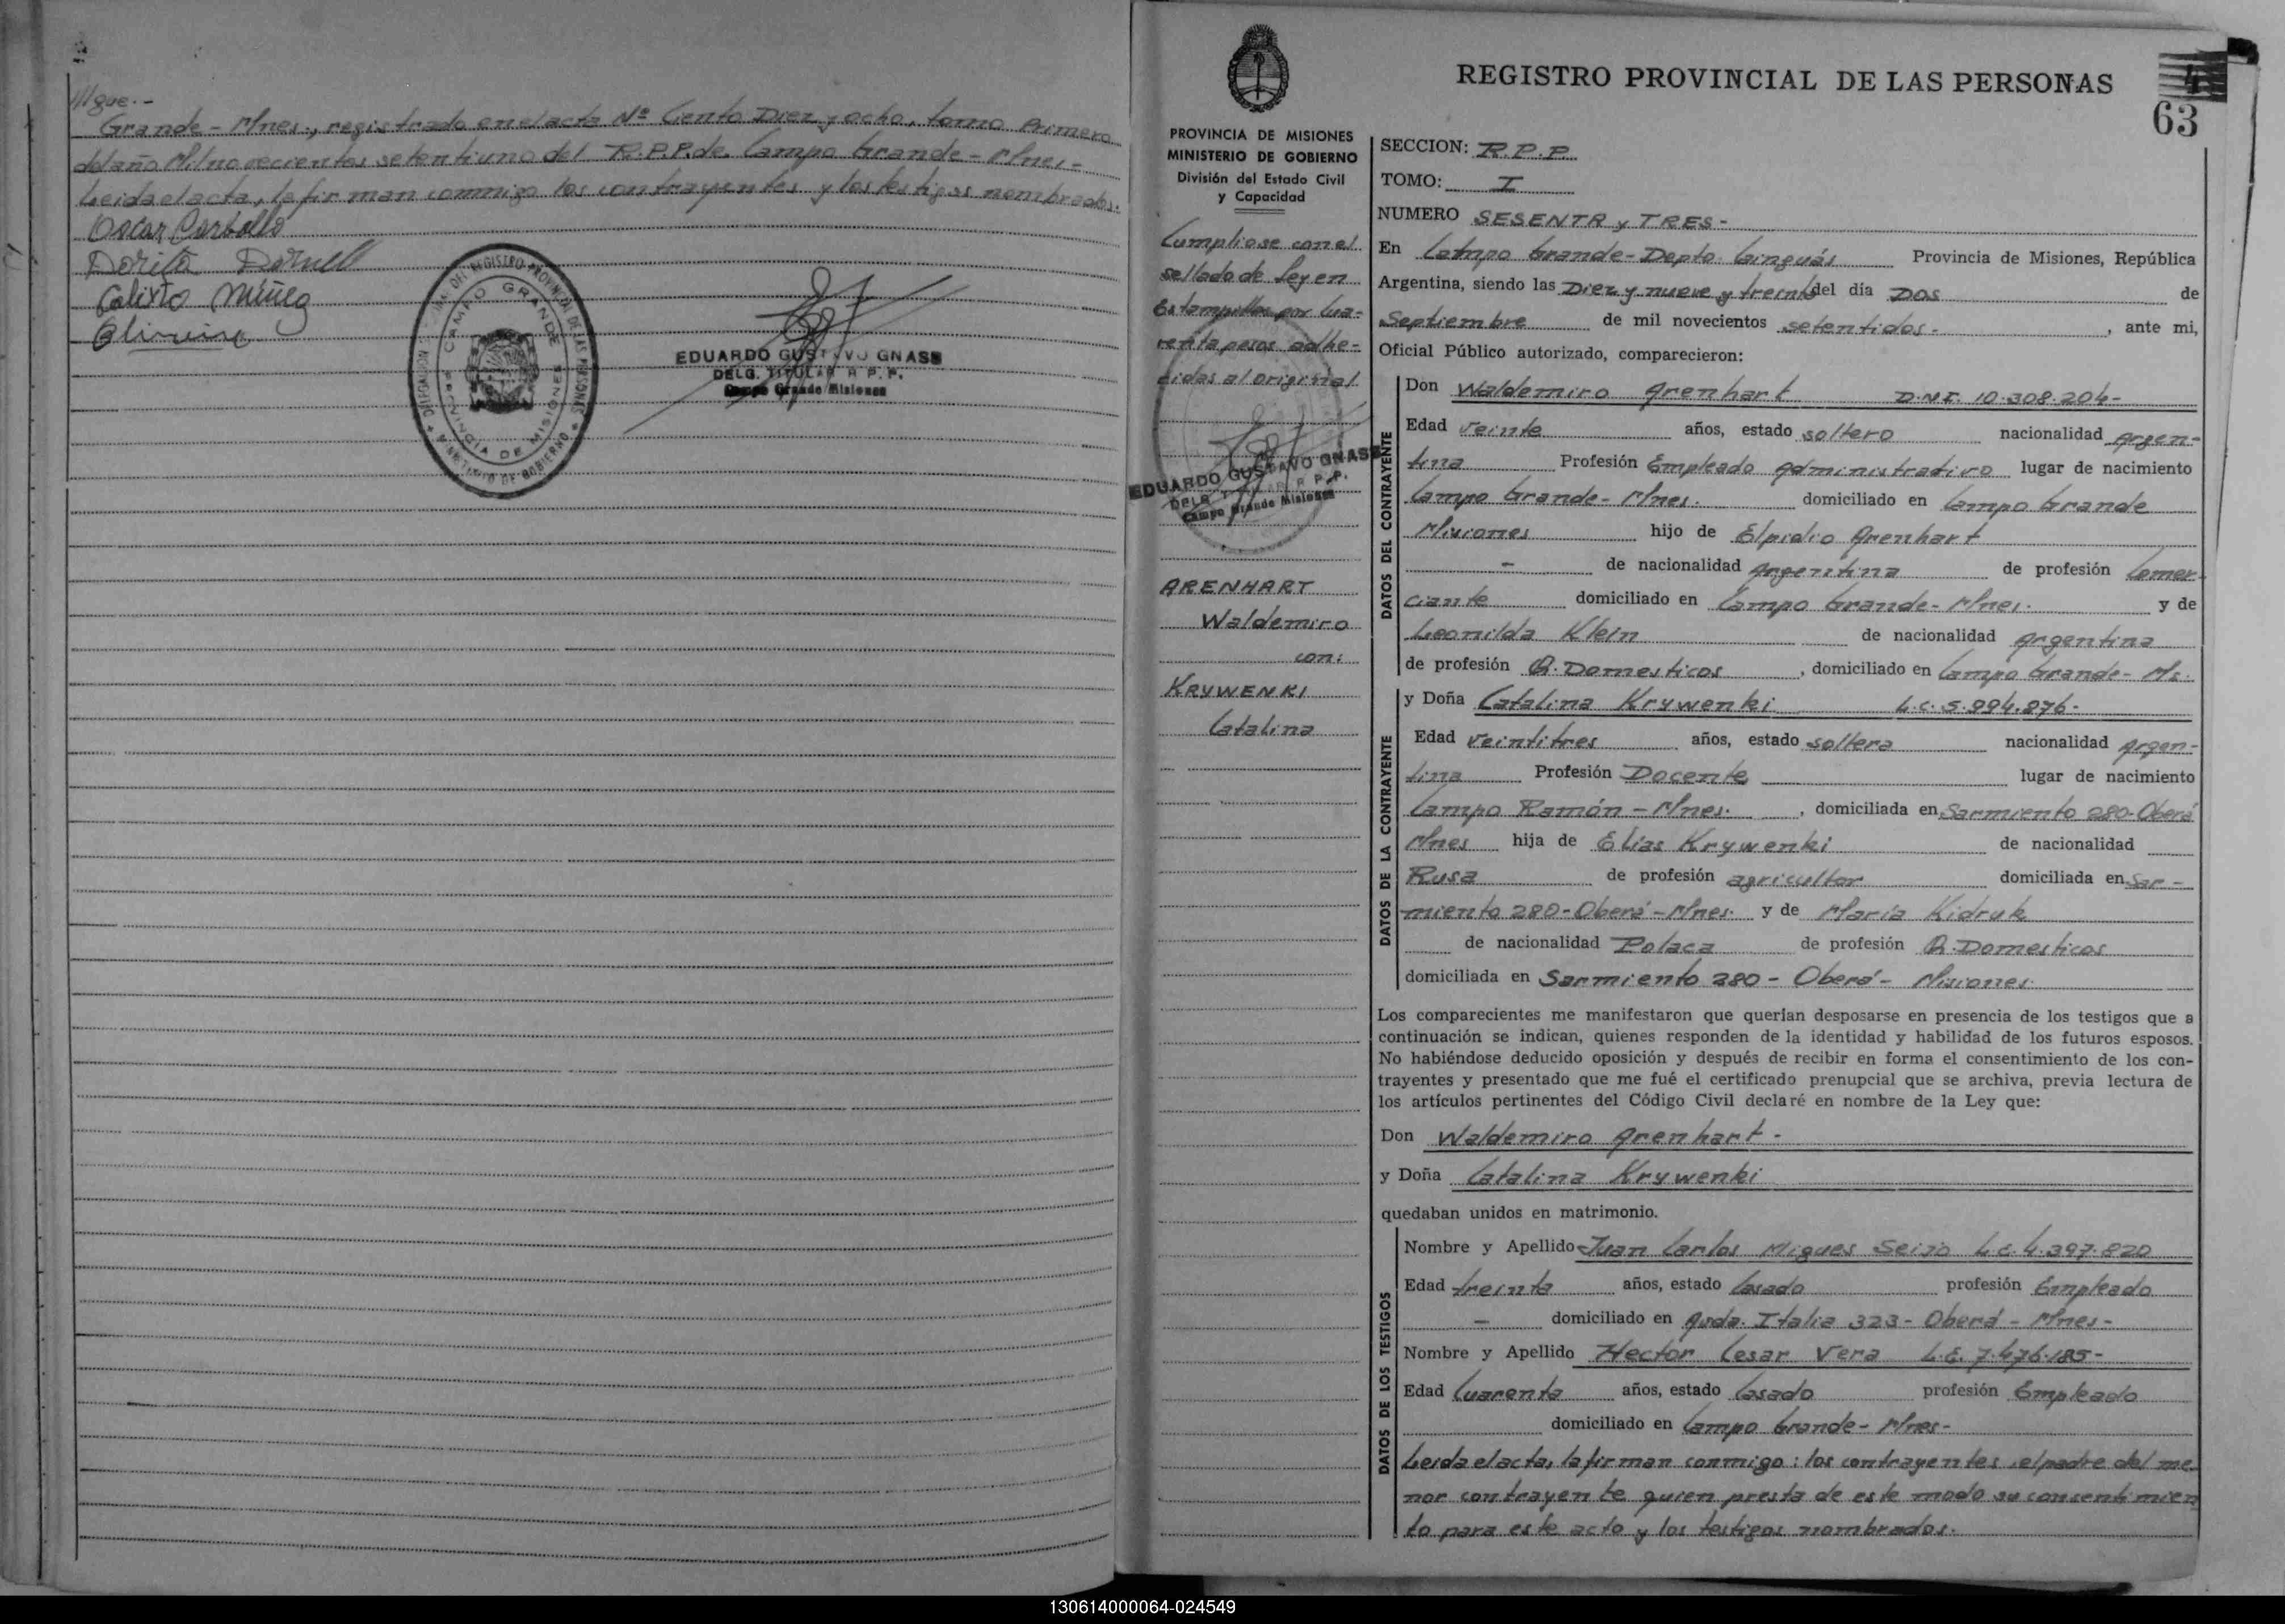 ///gue.-
Grande - Mnes., registrado en el acta Nº Ciento Diez y ocho, tomo Primero
del año Mil novecientos setentiuno del R.P.P. de Campo Grande - Mnes -
Leida el acta, la firman conmigo los contrayentes y los testigos nombrados.
Oscar Carballo
Dorita
Calixto Núñez
DELEGACION DEL REGISTRO PROVINCIAL DE LAS PERSONAS
MINISTERIO DE GOBIERNO
CAMPO GRANDE
PROVINCIA DE MISIONES
EDUARDO GUSTAVO GNASS
DELG. TITULAR R. P. P.
Campo Grande Misiones
REGISTRO PROVINCIAL DE LAS PERSONAS
63
PROVINCIA DE MISIONES
MINISTERIO DE GOBIERNO
División del Estado Civil
y Capacidad
Cumpliose con el
sellado de ley en
Estampillas por cua-
renta pesos adhe-
ridas al original
EDUARDO GUSTAVO GNASS
DELG. TITULAR R. P. P.
Campo Grande Misiones
ARENHART
Waldemiro
con:
KRYWENKI
Catalina
SECCION: R.P.P.
TOMO: I
NUMERO SESENTA y TRES -
En Campo Grande - Depto. Cainguás Provincia de Misiones, República
Argentina, siendo las Diez y nueve y treinta del día DOS de
Septiembre de mil novecientos setentidos - , ante mi,
Oficial Público autorizado, comparecieron:
DATOS DEL CONTRAYENTE
Don Waldemiro Arenhart D.N.I. 10.308.204-
Edad veinte años, estado soltero nacionalidad Argen-
tina Profesión Empleado Administrativo lugar de nacimiento
Campo Grande - Mnes. domiciliado en Campo Grande
Misiones hijo de Elpidio Arenhart
- de nacionalidad Argentina de profesión Comer-
ciante domiciliado en Campo Grande - Mnes. y de
Leonilda Klein de nacionalidad Argentina
de profesión Q. Domesticos , domiciliado en Campo Grande - Ms.
DATOS DE LA CONTRAYENTE
y Doña Catalina Krywenki L.C. 5.994.976-
Edad veintitres años, estado soltera nacionalidad Argen-
tina Profesión Docente lugar de nacimiento
Campo Ramón - Mnes. , domiciliada en Sarmiento 280 - Oberá
Mnes hija de Elías Krywenki de nacionalidad
Rusa de profesión agricultor domiciliada en Sar-
miento 280 - Oberá - Mnes. y de María Kidruk
de nacionalidad Polaca de profesión Q. Domesticos
domiciliada en Sarmiento 280 - Oberá - Misiones.
Los comparecientes me manifestaron que querían desposarse en presencia de los testigos que a
continuación se indican, quienes responden de la identidad y habilidad de los futuros esposos.
No habiéndose deducido oposición y después de recibir en forma el consentimiento de los con-
trayentes y presentado que me fué el certificado prenupcial que se archiva, previa lectura de
los artículos pertinentes del Código Civil declaré en nombre de la Ley que:
Don Waldemiro Arenhart -
y Doña Catalina Krywenki
quedaban unidos en matrimonio.
DATOS DE LOS TESTIGOS
Nombre y Apellido Juan Carlos Migues Seijo L.E. 4.397.820
Edad treinta años, estado Casado profesión Empleado
- domiciliado en Avda. Italia 323 - Oberá - Mnes -
Nombre y Apellido Hector Cesar Vera L.E. 7.476.185-
Edad Cuarenta años, estado Casado profesión Empleado
domiciliado en Campo Grande - Mnes -
Leida el acta, la firman conmigo: los contrayentes, el padre del me-
nor contrayente quien presta de este modo su consentimien
to para este acto y los testigos nombrados.
130614000064-024549